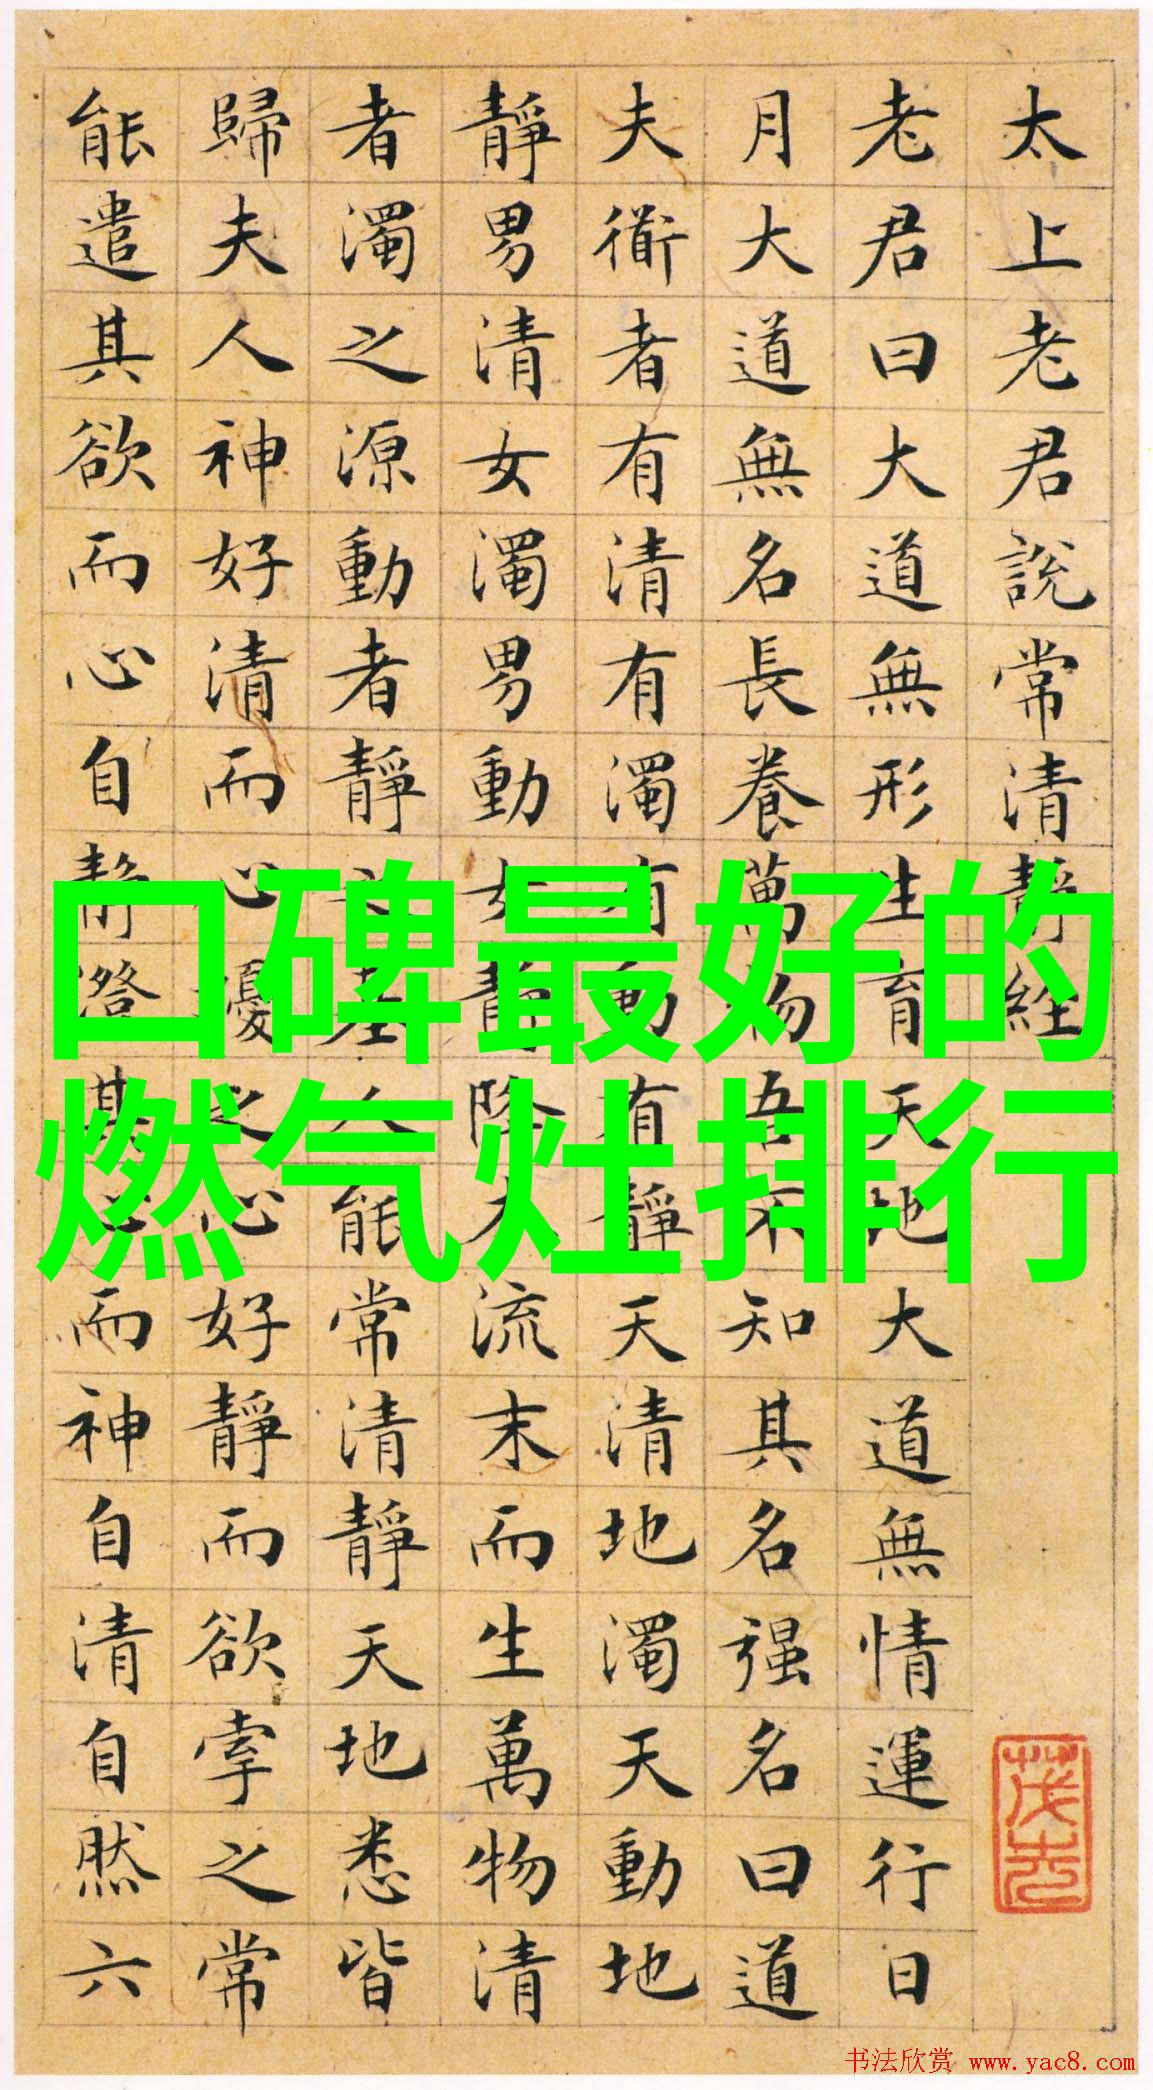 太上老君說常清靜經
老君曰大道無形生育天地大道無情運行日
月大道無名長養萬物吾不知其名强名曰道
夫衜者有清有濁有動有靜天清地濁天動地
靜男清女濁男動女靜降本流末而生萬物清
者濁之源動者靜之基人能常清靜天地悉皆
歸夫人神好清而心擾之人心好靜而欲牽之常
能遣其欲而心自靜澄其心而神自清自然六
口碑最好的
燃气灶排行
书法欣赏 www.yac8.com